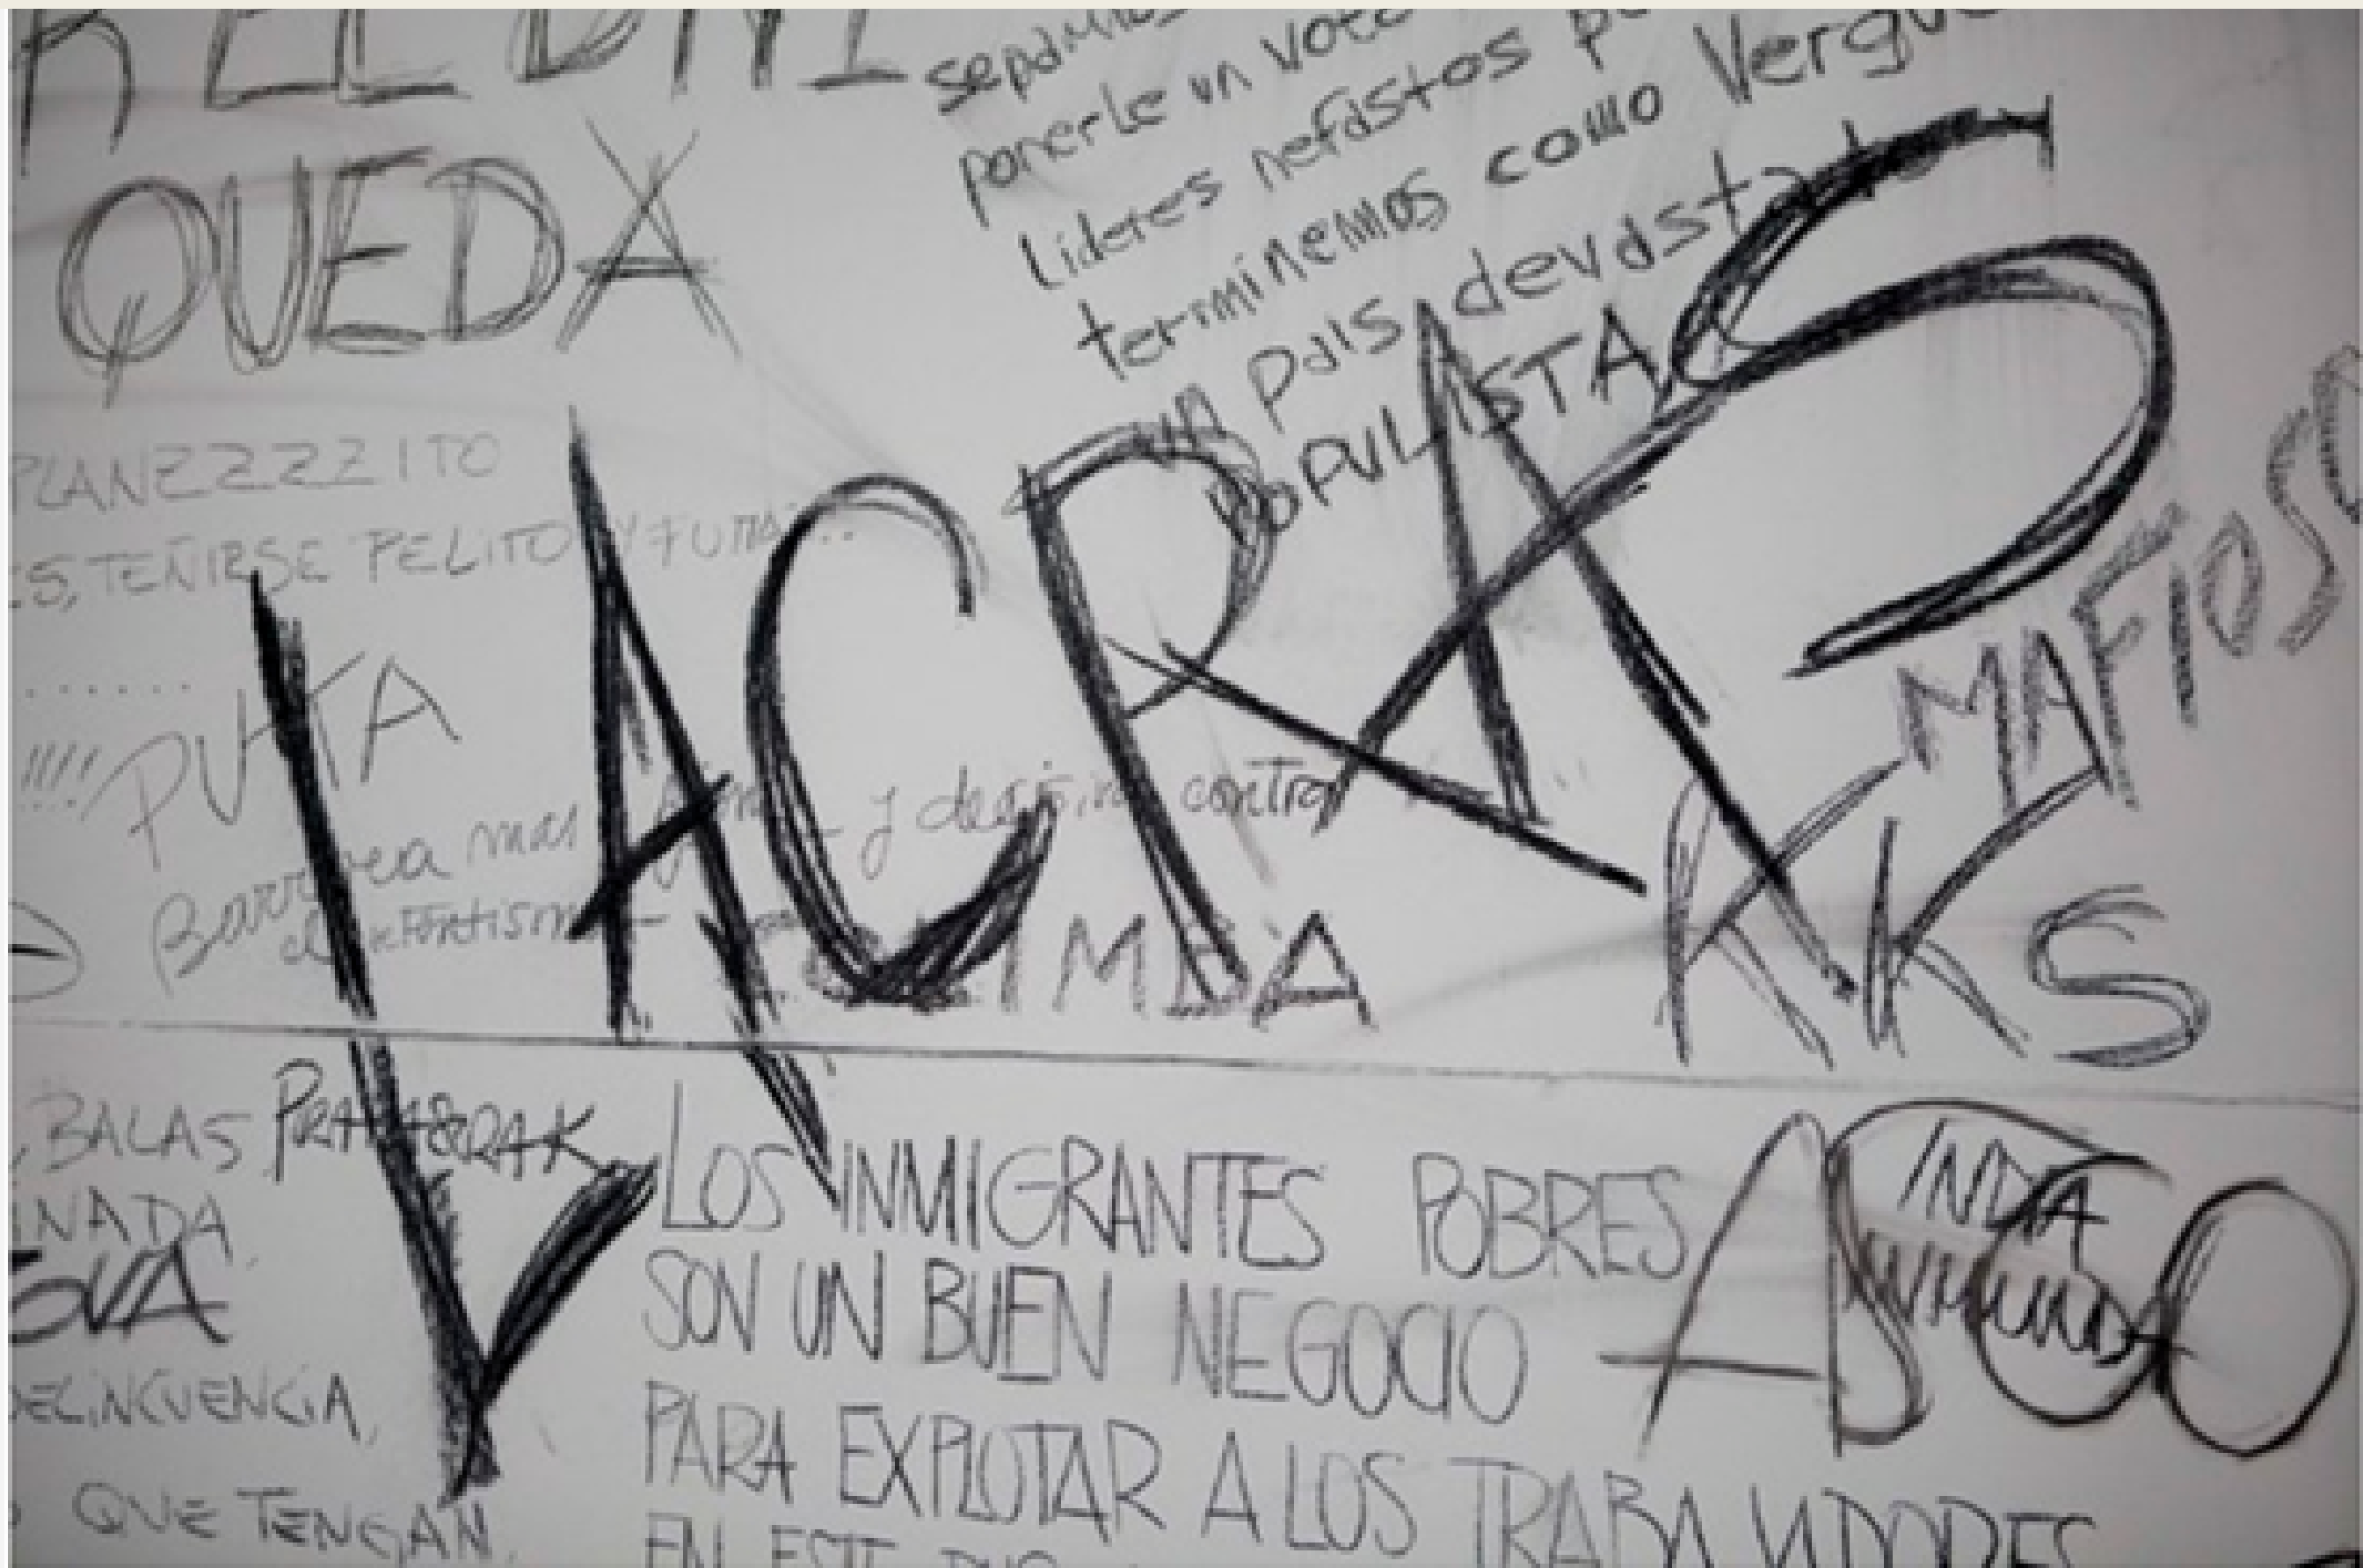 EL DNI
QUEDA
ponerle un voto
Lideres nefastos
terminemos como Vergu
un pais devastado
POPULISTAS
PLANEZZZZITO
ES, TEÑIRSE PELITO Y FUMA...
LACRAS
.......
!!!! PUTA
Barrera mas firme y decisiva contra
MAFIOSOS
KKS
, BALAS PRAKA PRAK
INADA,
DELINCUENCIA,
QUE TENGAN,
LOS INMIGRANTES POBRES
SON UN BUEN NEGOCIO
PARA EXPLOTAR A LOS TRABAJADORES
EN ESTE
ASCO
INDIA
INMUNDA